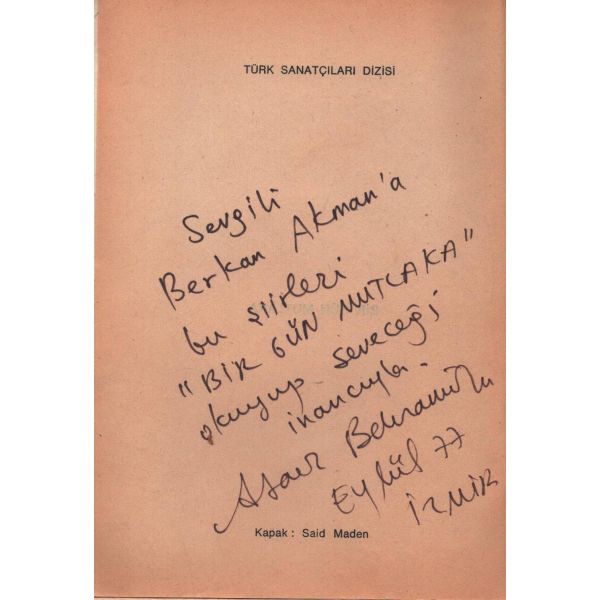 TÜRK SANATÇILARI DİZİSİ
Sevgili
Berkan Akman'a
bu şiirleri
"BİR GÜN MUTLAKA"
okuyup seveceği
inancıyla.
Ataol Behramoğlu
Eylül 77
İZMİR
Kapak : Said Maden